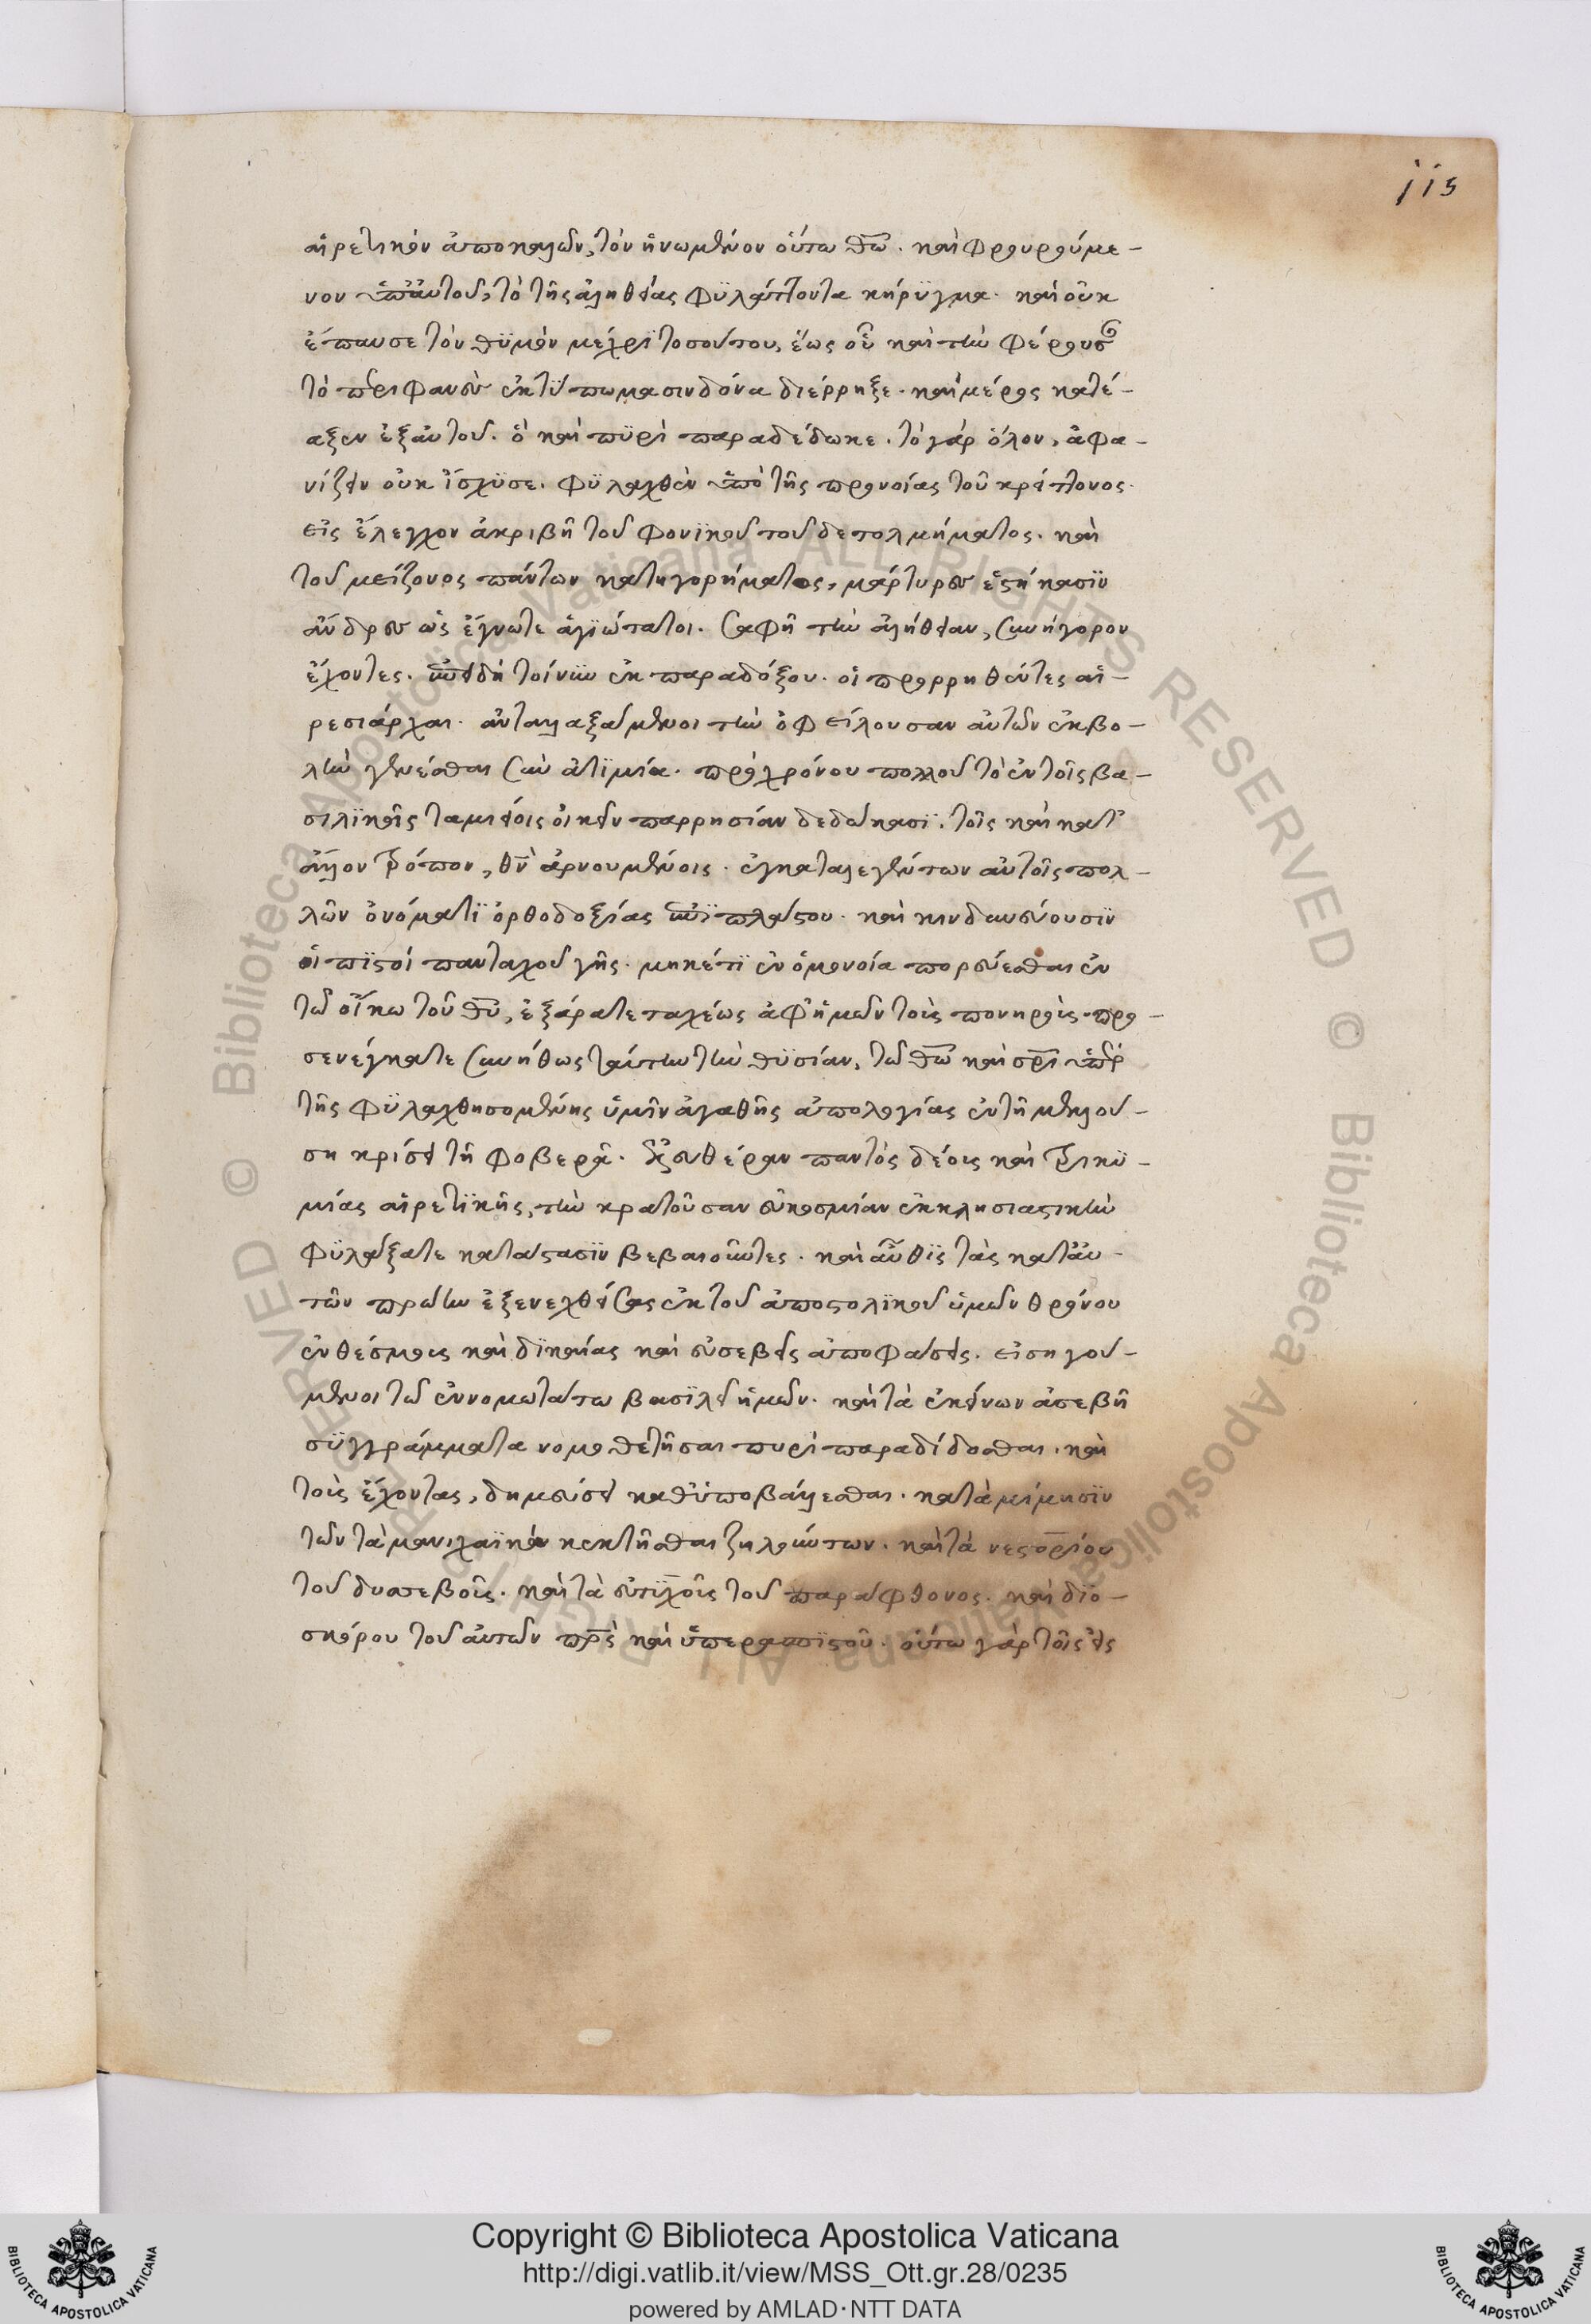 115
αἱρετικὸν ἀποκαλῶν, τὸν ἡνωμένον οὕτω θω̅. καὶ φρουρούμε-
νον ὑπ' αὐτοῦ, τὸ τῆς ἀληθείας φϋλάττοντα κήρϋγμα. καὶ οὐκ
ἔπαυσε τὸν θϋμὸν μέχρϊ τοσούτου, ἕως οὗ καὶ τὴν φέρουσαν
τὸ ἐκτϋπωμα σινδόνα διέρρηξε. καὶ μέρος κατέ-
αξεν ἐξ αὐτοῦ. ὃ καὶ πϋρὶ παραδέδωκε. τὸ γὰρ ὅλον, ἀφα-
νίζειν οὐκ ἴσχϋσε. φϋλαχθὲν ὑπὸ τῆς προνοίας τοῦ κρείττονος.
εἰς ἔλεγχον ἀκριβῆ τοῦ φονϊκοῦ τοῦδε τολμήματος. καὶ
τοῦ μείζονος πάντων κατηγορήματος, μάρτυρες ἑστήκασϊν
ἄνδρες ὡς ἔγνωτε ἁγϊώτατοι. σαφῆ τὴν ἀλήθειαν, συνήγορον
ἔχοντες. ἐπειδὴ τοίνϋν ἐκ παραδόξου. οἱ προρρηθέντες αἱ-
ρεσιάρχαι. ἀνταλλαξάμενοι τὴν ὀφείλουσαν αὐτῶν ἐκβο-
λὴν γενέσθαι σὺν ἀτϊμία. πρὸ χρόνου πολλοῦ τὸ ἐν τοῖς βα-
σιλϊκοῖς ταμιείοις οἰκεῖν παρρησίαν δεδώκασϊ. τοῖς καὶ κατ'
ἄλλον τρόπον, θν̅ ἀρνουμένοις. ἐγκαταλεγέντων αὐτοῖς πολ-
λῶν ὀνόματϊ ὀρθοδοξίας ἐπϊπλάστου. καὶ κινδυνεύουσϊν
οἱ πϊστοὶ πανταχοῦ γῆς. μηκέτϊ ἐν ὁμονοία πορεύεσθαι ἐν
τῶ οἴκω τοῦ θυ̅, ἐξάρατε ταχέως ἀφ' ἡμῶν τοὺς πονηρούς. προ-
σενέγκατε συνήθως ταύτην τὴν θϋσίαν, τῶ θω̅ καὶ σρι̅ ὑπὲρ
τῆς φϋλαχθησομένης ὑμῖν ἀγαθῆς ἀπολογίας ἐν τῆ μελλού-
ση κρίσει τῆ φοβερᾶ. ἐλευθέραν παντὸς δέους καὶ τρικϋ-
μίας αἱρετϊκῆς, τὴν κρατοῦσαν εὐκοσμίαν ἐκκλησιαστικὴν
φϋλάξατε κατάστασϊν βεβαιοῦντες. καὶ αὖθϊς τὰς κατ' αὐ-
τῶν πρώην ἐξενεχθείσας ἐκ τοῦ ἀποστολϊκοῦ ὑμῶν θρόνου
ἐνθέσμους καὶ δϊκαίας καὶ εὐσεβεῖς ἀποφάσεις. εἰσηγού-
μενοι τῶ ἐννομωτάτω βασϊλεῖ ἡμῶν. καὶ τὰ ἐκείνων ἀσεβῆ
σϋγγράμματα νομοθετῆσαι πυρὶ παραδίδοσθαι. καὶ
τοὺς ἔχοντας, δημεύσει καθϋποβάλλεσθαι. κατὰ μίμησϊν
τῶν τὰ μανιχαϊκὰ κεκτῆσθαι ζηλούντων. καὶ τὰ νεστορίου
τοῦ δυσσεβοῦς. καὶ τὰ εὐτϋχοῦς τοῦ παράφθονος. καὶ δϊο-
σκόρου τοῦ αὐτῶν πρς̅ καὶ ὑπερασπϊστοῦ. οὕτω γὰρ τοῖς εἰς
Copyright © Biblioteca Apostolica Vaticana
http://digi.vatlib.it/view/MSS_Ott.gr.28/0235
powered by AMLAD·NTT DATA